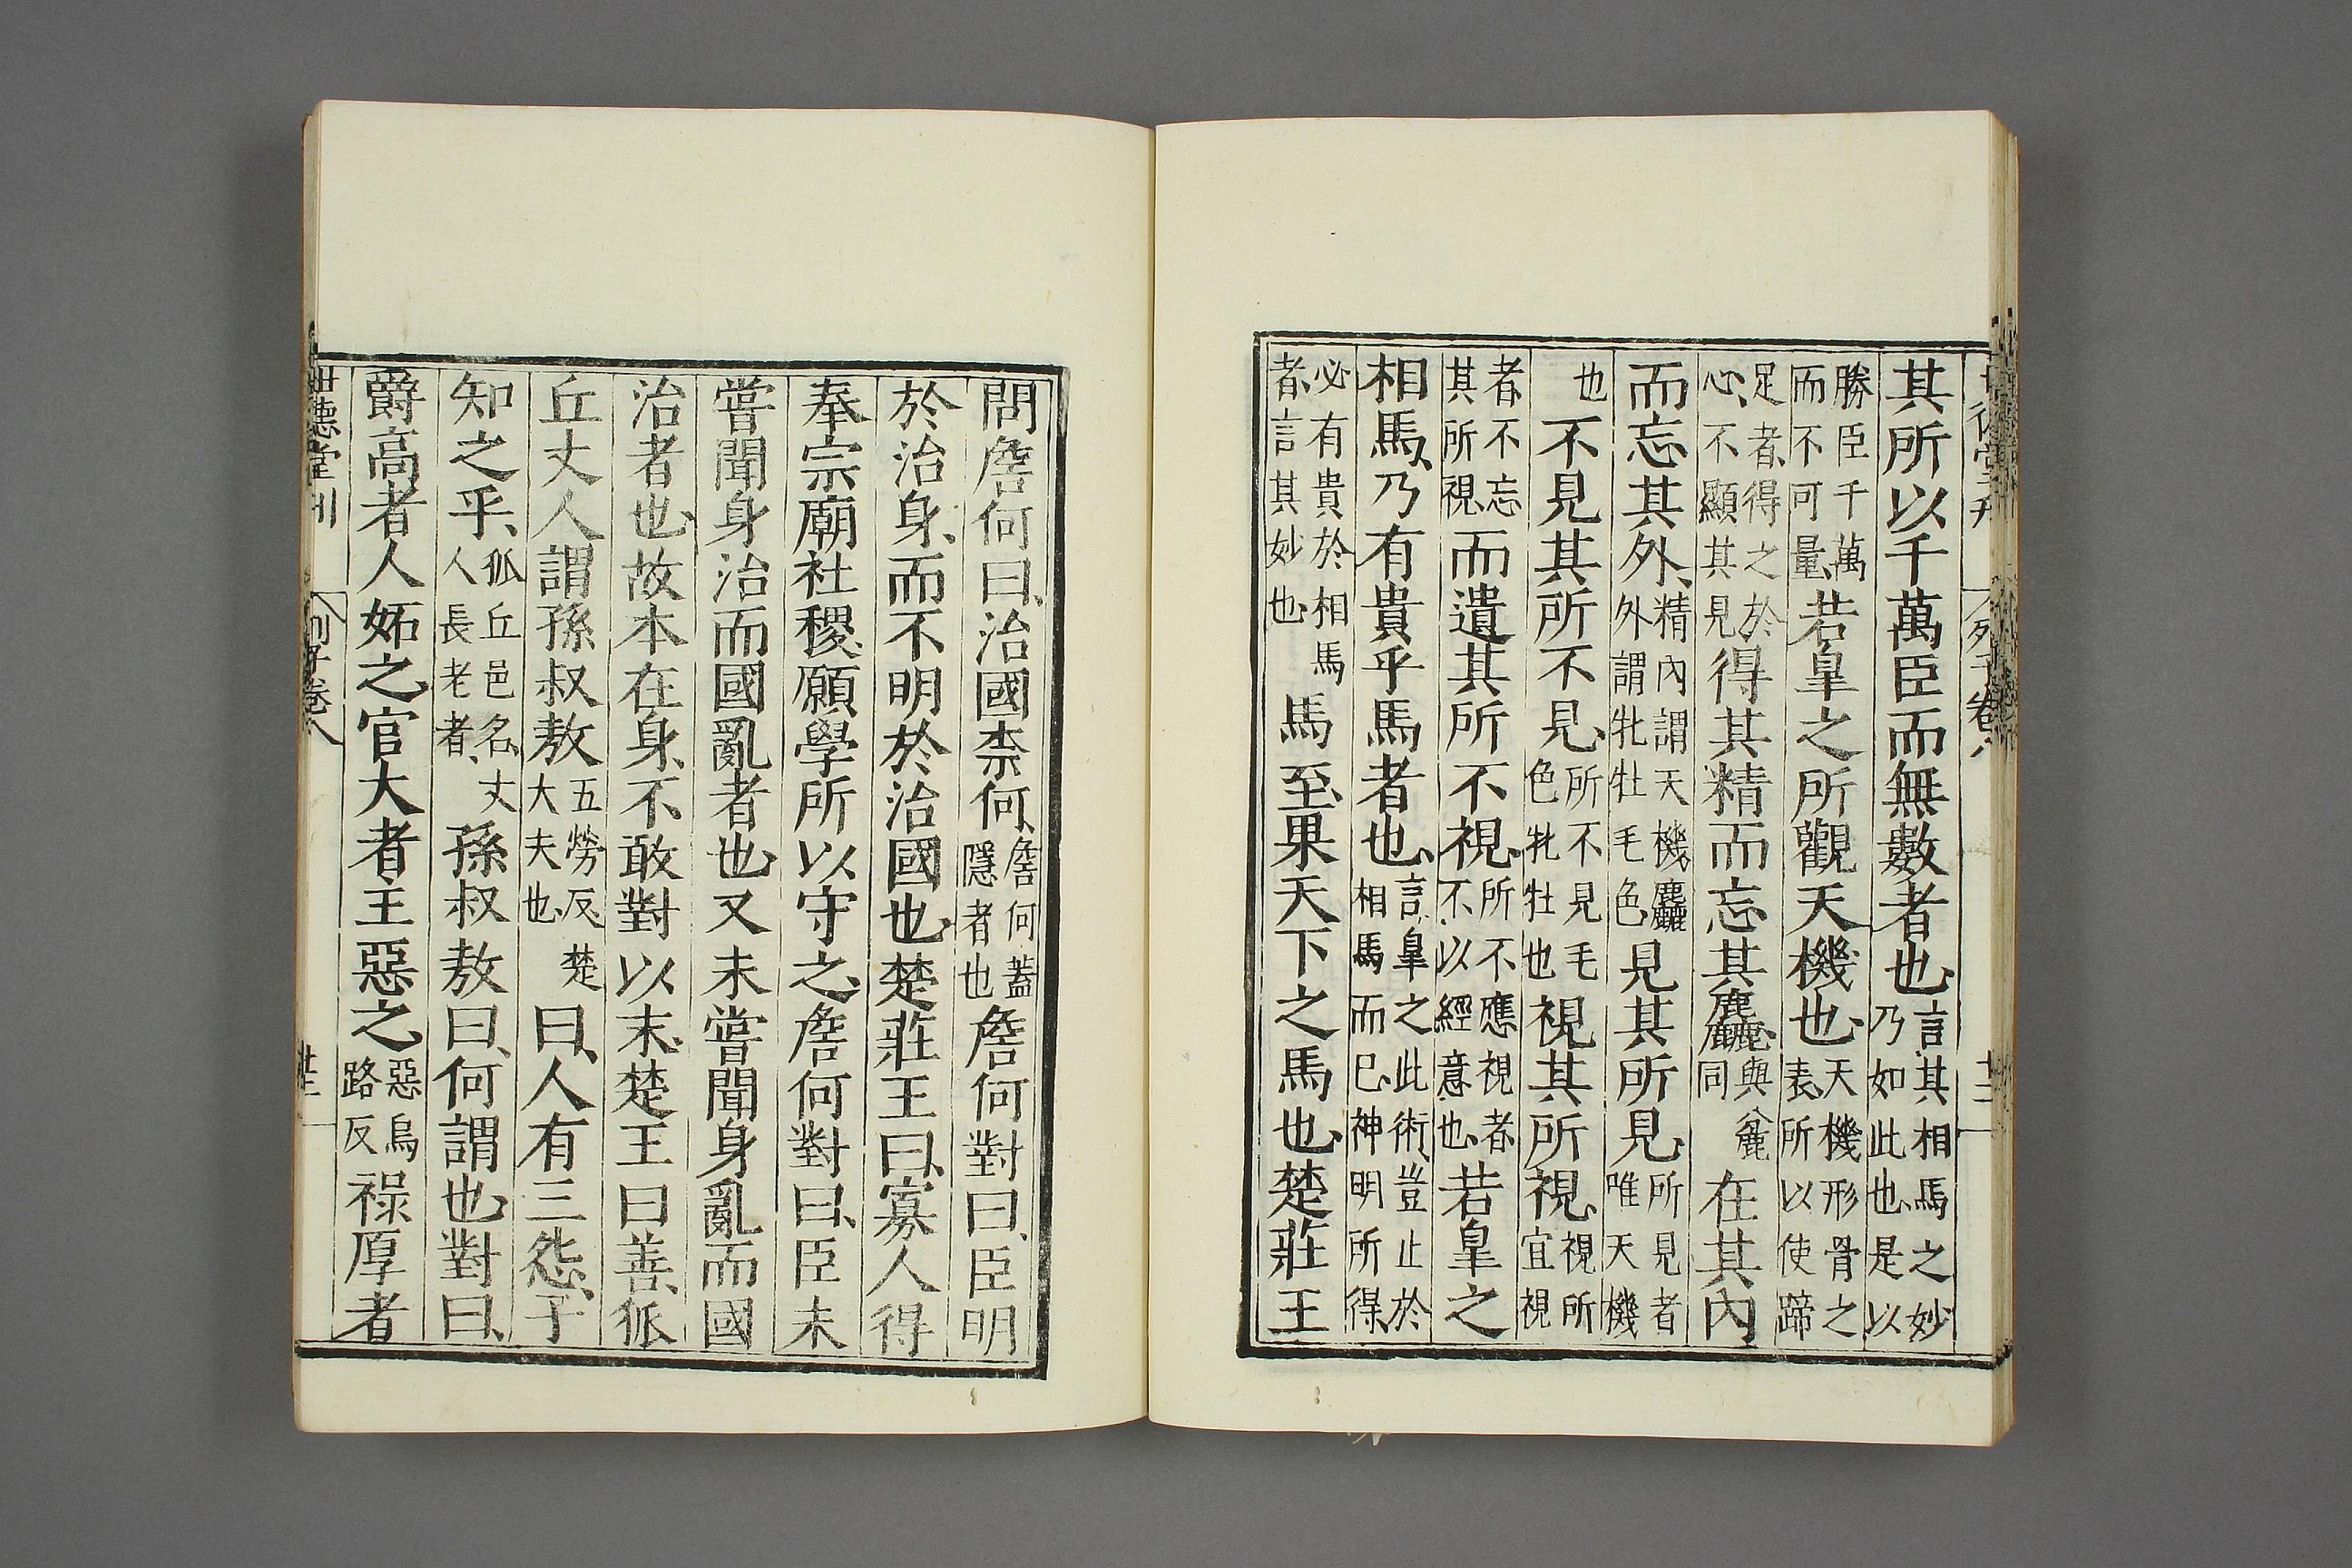 其所以千萬臣而無數者也言其相馬之妙乃如此也是以
勝臣千萬而不可量若臯之所觀天機也天機形骨之表所以使蹄
足者得之於心不顯其見得其精而忘其麤麤與麄同在其內
而忘其外精內謂天機麤外謂牝牡毛色見其所見所見者唯天機
也不見其所不見所不見毛色牝牡也視其所視視所宜視
者不忘其所視而遺其所不視所不應視者不以經意也若臯之
相馬乃有貴乎馬者也言臯之此術豈止於相馬而已神明所得
必有貴於相馬者言其妙也馬至果天下之馬也楚莊王
問詹何曰治國柰何詹何蓋隱者也詹何對曰臣明
於治身而不明於治國也楚莊王曰寡人得
奉宗廟社稷願學所以守之詹何對曰臣未
嘗聞身治而國亂者也又未嘗聞身亂而國
治者也故本在身不敢對以末楚王曰善狐
丘丈人謂孫叔敖五勞反楚大夫也曰人有三怨子
知之乎狐丘邑名丈人長老者孫叔敖曰何謂也對曰
爵高者人妬之官大者主惡之惡烏路反祿厚者
世德堂刊
列子卷八